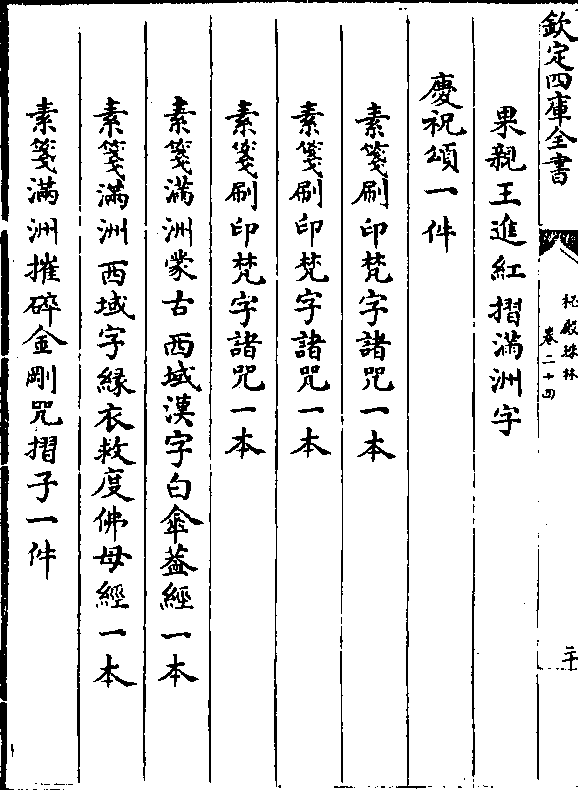 欽定四庫全書
秘殿珠林
卷二十四
二十
果親王進紅摺滿洲字
慶祝頌一件
素箋刷印梵字諸咒一本
素箋刷印梵字諸咒一本
素箋刷印梵字諸咒一本
素箋滿洲蒙古西域漢字白傘葢經一本
素箋滿洲西域字緣衣救度佛母經一本
素箋滿洲摧碎金剛咒摺子一件